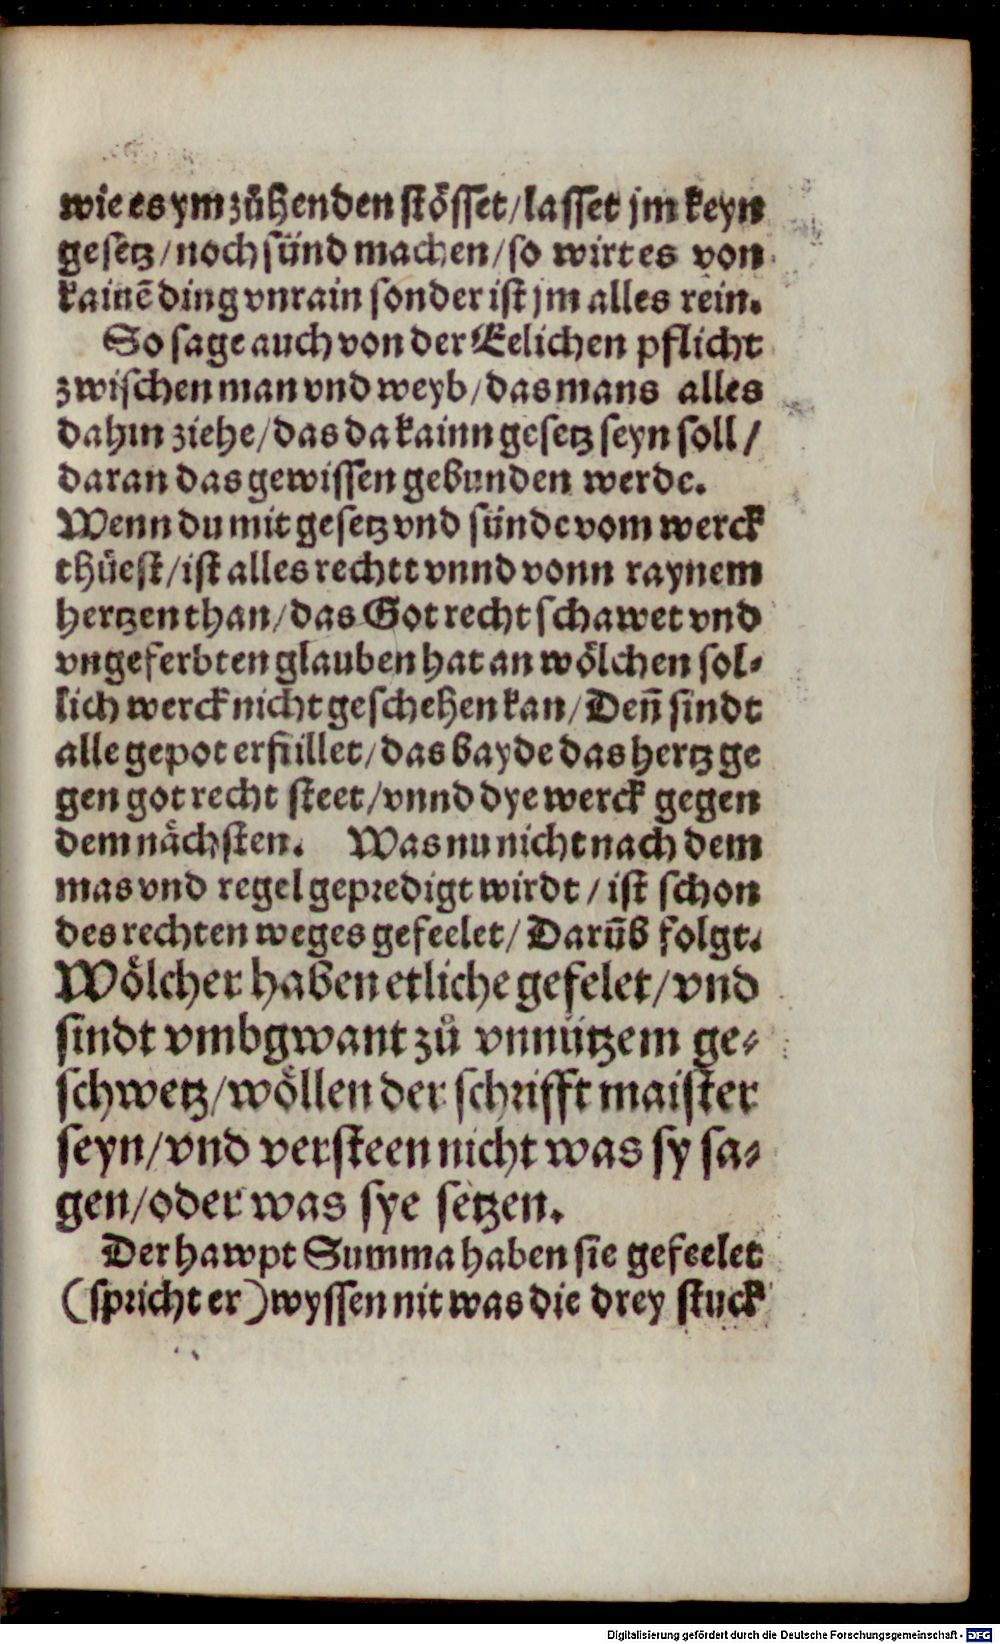 wie es ym zuͦhenden stoͤsset/lasset jm keyn
gesetz/noch sünd machen/so wirt es von
kainē ding vnrain sonder ist jm alles rein.
So sage auch von der Eelichen pflicht
zwischen man vnd weyb/das mans alles
dahin ziehe/das da kainn gesetz seyn soll/
daran das gewissen gebunden werde.
Wenn du mit gesetz vnd sünde vom werck
thuͤest/ist alles rechtt vnnd vonn raynem
hertzen than/das Got recht schawet vnd
vngeferbten glauben hat an woͤlchen sol⸗
lich werck nicht geschehen kan/Deñ sindt
alle gepot erfüllet/das bayde das hertz ge
gen got recht steet/vnnd dye werck gegen
dem naͤchsten. Was nu nicht nach dem
mas vnd regel gepredigt wirdt/ist schon
des rechten weges gefeelet/Darūb folgt.
Woͤlcher haben etliche gefelet/vnd
sindt vmbgwant zuͦ vnnützem ge⸗
schwetz/woͤllen der schrifft maister
seyn/vnd versteen nicht was sy sa⸗
gen/oder was sye setzen.
Der hawpt Summa haben sie gefeelet
(spricht er) wyssen nit was die drey stuck
Digitalisierung gefördert durch die Deutsche Forschungsgemeinschaft - DFG